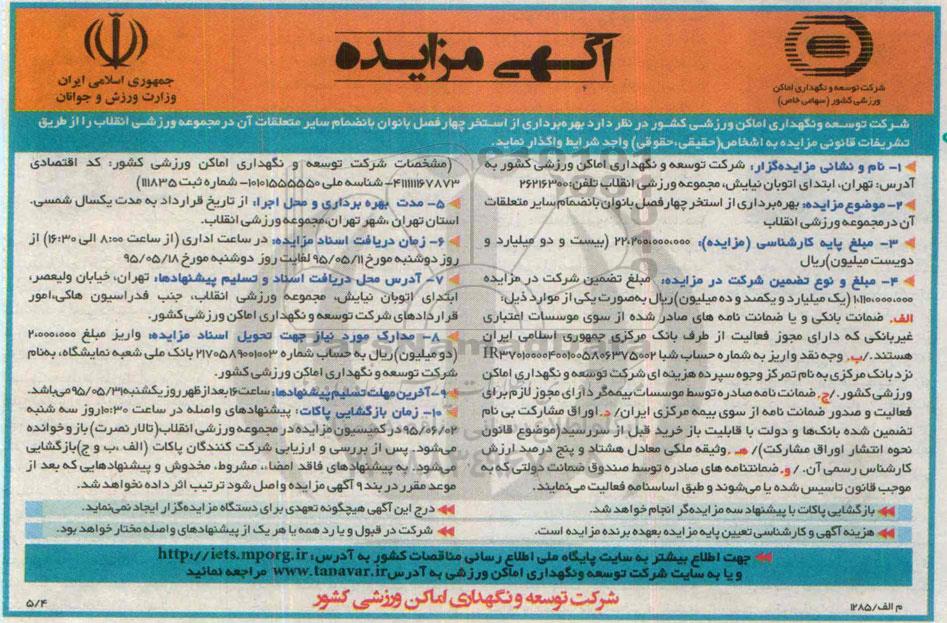 شرکت توسعه و نگهداری اماکن
ورزشی کشور (سهامی خاص)
آگهی مزایده
جمهوری اسلامی ایران
وزارت ورزش و جوانان
شرکت توسعه ونگهداری اماکن ورزشی کشور در نظر دارد بهره‌برداری از استخر چهارفصل بانوان بانضمام سایر متعلقات آن درمجموعه ورزشی انقلاب را از طریق
تشریفات قانونی مزایده به اشخاص(حقیقی،حقوقی) واجد شرایط واگذار نماید.
۱- نام و نشانی مزایده‌گزار: شرکت توسعه و نگهداری اماکن ورزشی کشور به
آدرس: تهران، ابتدای اتوبان نیایش، مجموعه ورزشی انقلاب تلفن:۲۶۲۱۶۳۰۰
۲-موضوع‌مزایده: بهره‌برداری از استخر چهارفصل بانوان بانضمام‌سایر متعلقات
آن درمجموعه ورزشی انقلاب
۳- مبلغ پایه کارشناسی (مزایده): ۲۲،۲۰۰،۰۰۰،۰۰۰ (بیست و دو میلیارد و
دویست میلیون)ریال
۴- مبلغ و نوع تضمین شرکت در مزایده: مبلغ تضمین شرکت در مزایده
۱،۱۱۰،۰۰۰،۰۰۰ (یک میلیارد و یکصد و ده میلیون)ریال به‌صورت یکی از موارد ذیل:
الف. ضمانت بانکی و یا ضمانت نامه های صادر شده از سوی موسسات اعتباری
غیربانکی که دارای مجوز فعالیت از طرف بانک مرکزی جمهوری اسلامی ایران
هستند./ب. وجه نقد واریز به شماره حساب شبا IR۳۷۰۱۰۰۰۰۴۰۰۱۰۰۵۸۰۶۳۷۵۰۰۲
نزد بانک مرکزی به نام تمرکز وجوه سپرده هزینه ای شرکت توسعه و نگهداری اماکن
ورزشی کشور./ج. ضمانت نامه صادره توسط موسسات بیمه‌گر دارای مجوز لازم برای
فعالیت و صدور ضمانت نامه از سوی بیمه مرکزی ایران/ د. اوراق مشارکت بی نام
تضمین شده بانک‌ها و دولت با قابلیت باز خرید قبل از سررسید(موضوع قانون
نحوه انتشار اوراق مشارکت)/ هـ. وثیقه ملکی معادل هشتاد و پنج درصد ارزش
کارشناس رسمی آن. / و. ضمانتنامه های صادره توسط صندوق ضمانت دولتی که به
موجب قانون تاسیس شده یا می‌شوند و طبق اساسنامه فعالیت می‌نمایند.
(مشخصات شرکت توسعه و نگهداری اماکن ورزشی کشور: کد اقتصادی
۴۱۱۱۱۱۱۶۷۸۷۳- شناسه ملی ۱۰۱۰۱۵۵۵۵۵۰- شماره ثبت ۱۱۱۸۳۵)
۵- مدت بهره برداری و محل اجرا: از تاریخ قرارداد به مدت یکسال شمسی.
استان تهران ،شهر تهران،مجموعه ورزشی انقلاب.
۶- زمان دریافت اسناد مزایده: در ساعت اداری (از ساعت ۸:۰۰ الی ۱۶:۳۰) از
روز دوشنبه مورخ ۹۵/۰۵/۱۱ لغایت روز دوشنبه مورخ ۹۵/۰۵/۱۸
۷- آدرس محل دریافت اسناد و تسلیم پیشنهادها: تهران، خیابان ولیعصر،
ابتدای اتوبان نیایش، مجموعه ورزشی انقلاب، جنب فدراسیون هاکی،امور
قراردادهای شرکت توسعه و نگهداری اماکن ورزشی کشور.
۸- مدارک مورد نیاز جهت تحویل اسناد مزایده: واریز مبلغ ۲،۰۰۰،۰۰۰
(دو میلیون)ریال به حساب شماره ۲۱۷۰۵۸۹۰۰۱۰۰۳ بانک ملی شعبه نمایشگاه، به‌نام
شرکت توسعه و نگهداری اماکن ورزشی کشور.
۹-آخرین مهلت تسلیم پیشنهادها: ساعت۱۶بعدازظهر روز یکشنبه۹۵/۰۵/۳۱ می‌باشد.
۱۰- زمان بازگشایی پاکات: پیشنهادهای واصله در ساعت ۱۰:۳۰روز سه شنبه
۹۵/۰۶/۰۲ در کمیسیون مزایده در مجموعه ورزشی انقلاب(تالار نصرت) باز و خوانده
می‌شود. پس از بررسی و ارزیابی شرکت کنندگان پاکات (الف ،ب و ج)بازگشایی
می‌شود. به پیشنهادهای فاقد امضاء، مشروط، مخدوش و پیشنهادهایی که بعد از
موعد مقرر در بند ۹ آگهی مزایده واصل شود ترتیب اثر داده نخواهد شد.
بازگشایی پاکات با پیشنهاد سه مزایده‌گر انجام خواهد شد.
درج این آگهی هیچگونه تعهدی برای دستگاه مزایده‌گزار ایجاد نمی‌نماید.
هزینه آگهی و کارشناسی تعیین پایه مزایده بعهده برنده مزایده است.
شرکت در قبول و یا رد همه یا هر یک از پیشنهادهای واصله مختار خواهد بود.
جهت اطلاع بیشتر به سایت پایگاه ملی اطلاع رسانی مناقصات کشور به آدرس: http://iets.mporg.ir
و یا به سایت شرکت توسعه ونگهداری اماکن ورزشی به آدرس www.tanavar.ir مراجعه نمائید
شرکت توسعه و نگهداری اماکن ورزشی کشور
م الف/۱۲۸۵
۵/۴